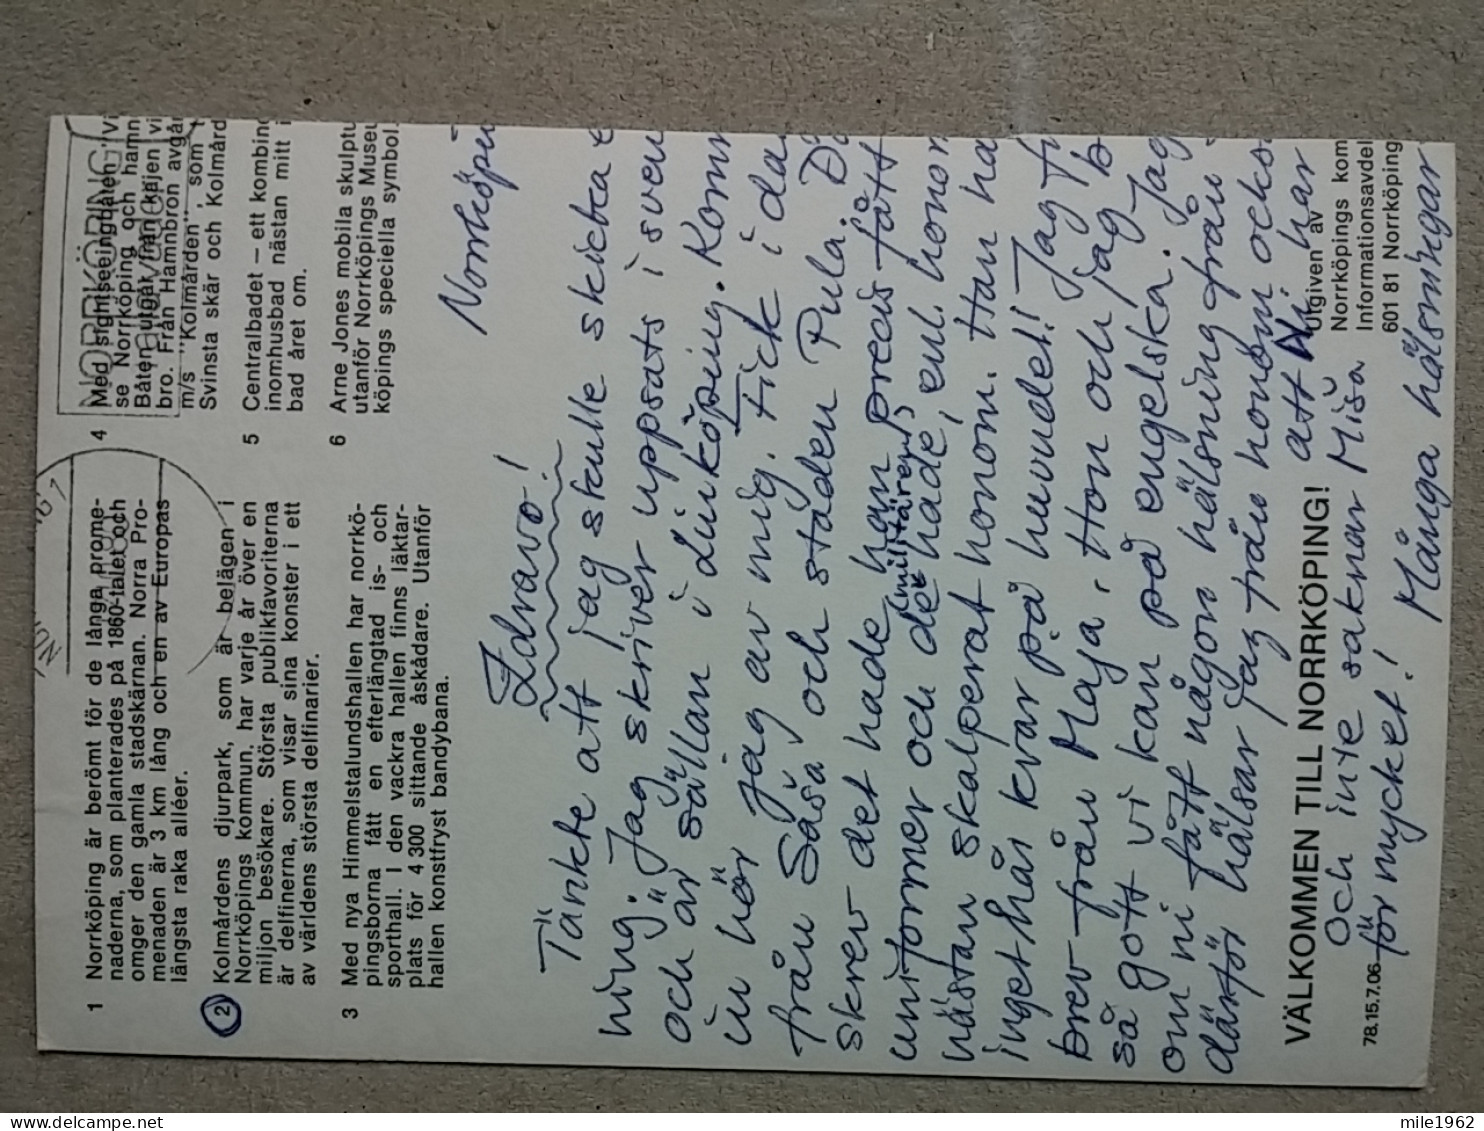 1 Norrköping är berömt för de långa prome-
naderna, som planterades på 1860-talet och
omger den gamla stadskärnan. Norra Pro-
menaden är 3 km lång och en av Europas
längsta raka alléer.
2 Kolmårdens djurpark, som är belägen i
Norrköpings kommun, har varje år över en
miljon besökare. Största publikfavoriterna
är delfinerna, som visar sina konster i ett
av världens största delfinarier.
3 Med nya Himmelstalundshallen har norrkö-
pingsborna fått en efterlängtad is- och
sporthall. I den vackra hallen finns läktar-
plats för 4 300 sittande åskådare. Utanför
hallen konstfryst bandybana.
NORRKÖPING
4 Med sightseeingbåten "Vi
se Norrköping och hamn
Båten utgår från kajen vi
bro. Från Hamnbron avgår
m/s "Kolmården", som t
Svinsta skär och Kolmård
5 Centralbadet – ett kombine
inomhusbad nästan mitt i
bad året om.
6 Arne Jones mobila skulptu
utanför Norrköpings Museu
köpings speciella symbol.
Norrköpin
Zdravo!
Tänkte att jag skulle skicka e
ning. Jag skriver uppsats i sven
och är sällan i Linköping. Komm
ju hör jag av mig. Fick i da
från Saša och staden Pula. Dä
skrev det hade han precis fått
(militären)
uniformer och de hade, enl. honom
nästan skalperat honom. Han ha
inget hår kvar på huvudet! Jag f
brev från Maja. Hon och jag b
så gott vi kan på engelska. Jag
om ni fått någon hälsning från
därför hälsar jag från honom också
att Ni har
VÄLKOMMEN TILL NORRKÖPING!
Och inte saknar Miša
för mycket!
Många hälsningar
78.15.7.06
Utgiven av
Norrköpings kom
Informationsavdel
601 81 Norrköping
mile1962